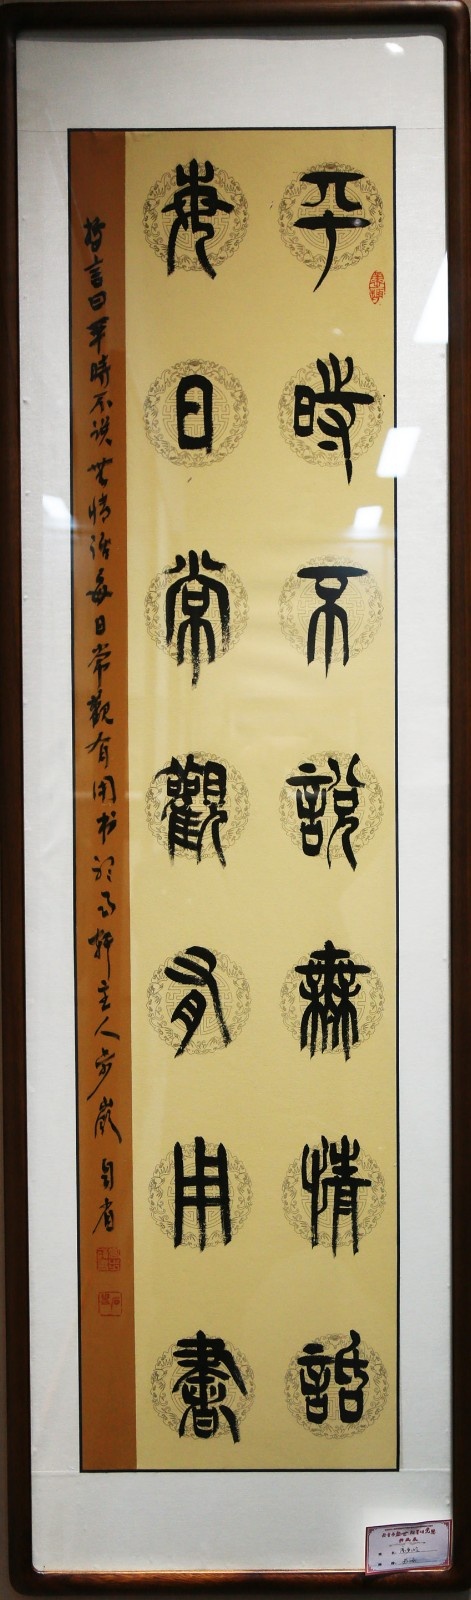 平時不說無情話
每日常觀有用書
哲言曰平時不说無情话每日常觀有用书 主人 自省